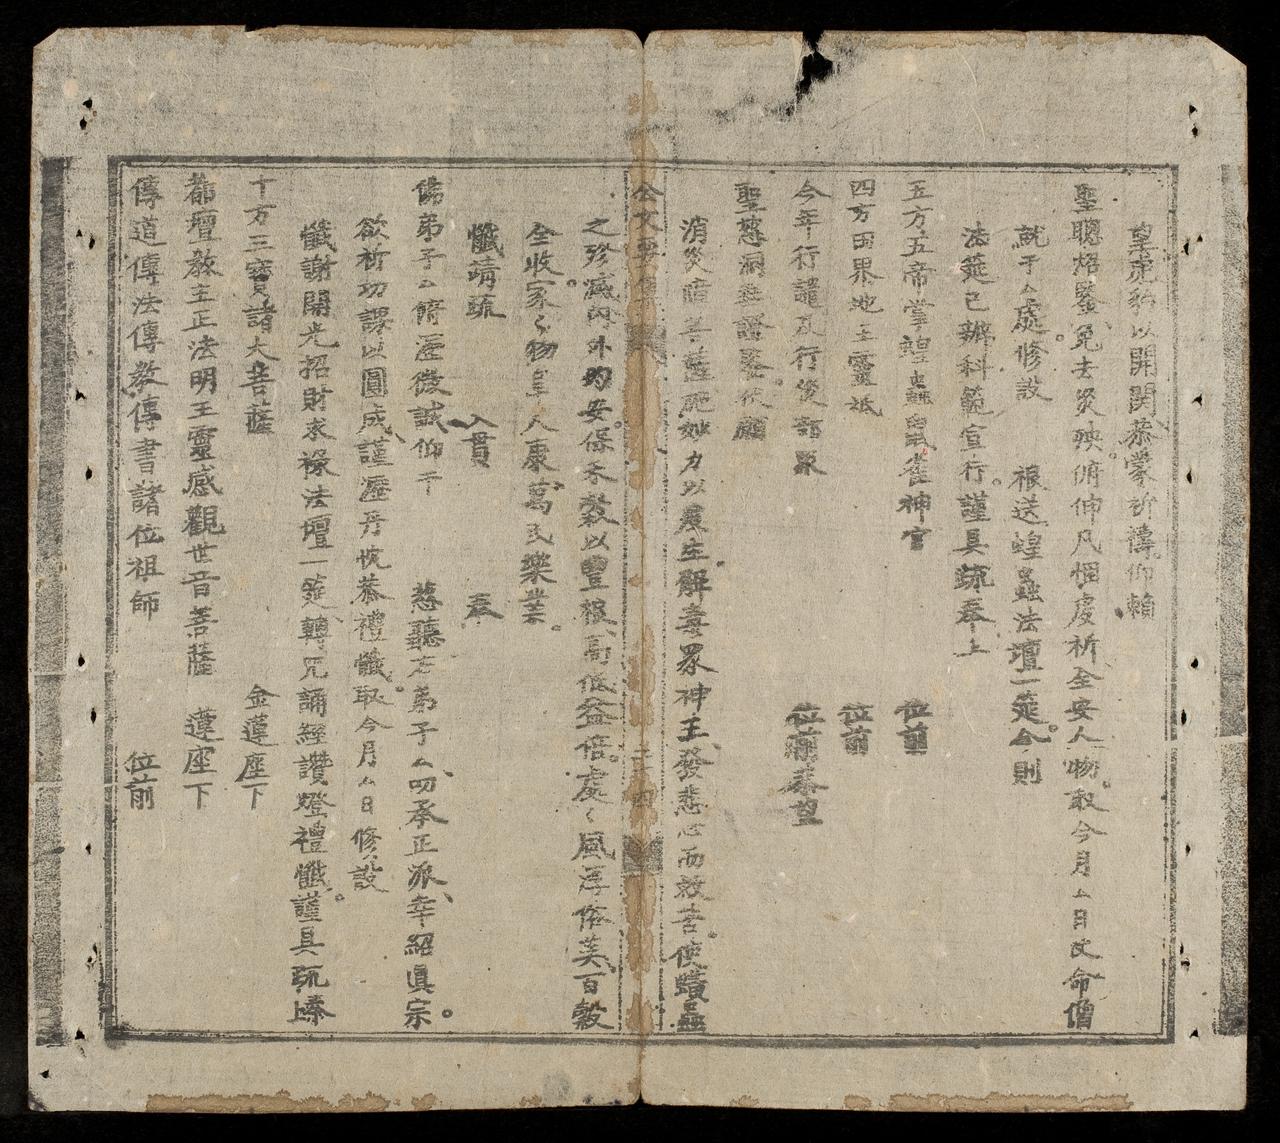 以開關恭蒙祈禱仰賴
聖聰昭鑒免去災殃俯伸凡悃虔祈全安人物取今月厶日文命僧
就于厶處修設　根送蝗蟲法壇一筵今則
法筵已辦科範宣行謹具疏奉上
五方五帝掌蝗蟲雀神官　位前
四方田界地主靈祇　位前
今年行譴及行災部眾　位前奉望
聖慈洞垂證
消災障菩薩施妙力以眾生解毒眾神王發悲心而救苦使蝗蟲
公文　三四
之殄滅內外均安保禾穀以豐根高低益倍處々風淳俗美百穀
全收家々物阜人康萬民樂業
懺靖疏　入貫　奉
佛弟子厶俯瀝微誠仰干　慈聽念弟子厶叨承正派幸紹真宗
欲祈功課以圓成謹瀝丹忱恭禮懺取今月厶日修設
懺謝開光招財求祿法壇一筵轉咒誦經讚燈禮懺謹具疏
十方三寶諸大菩薩　金蓮座下
都壇教主正法明王靈感觀世音菩薩　蓮座下
傳道傳法傳教傳書諸位祖師　位前